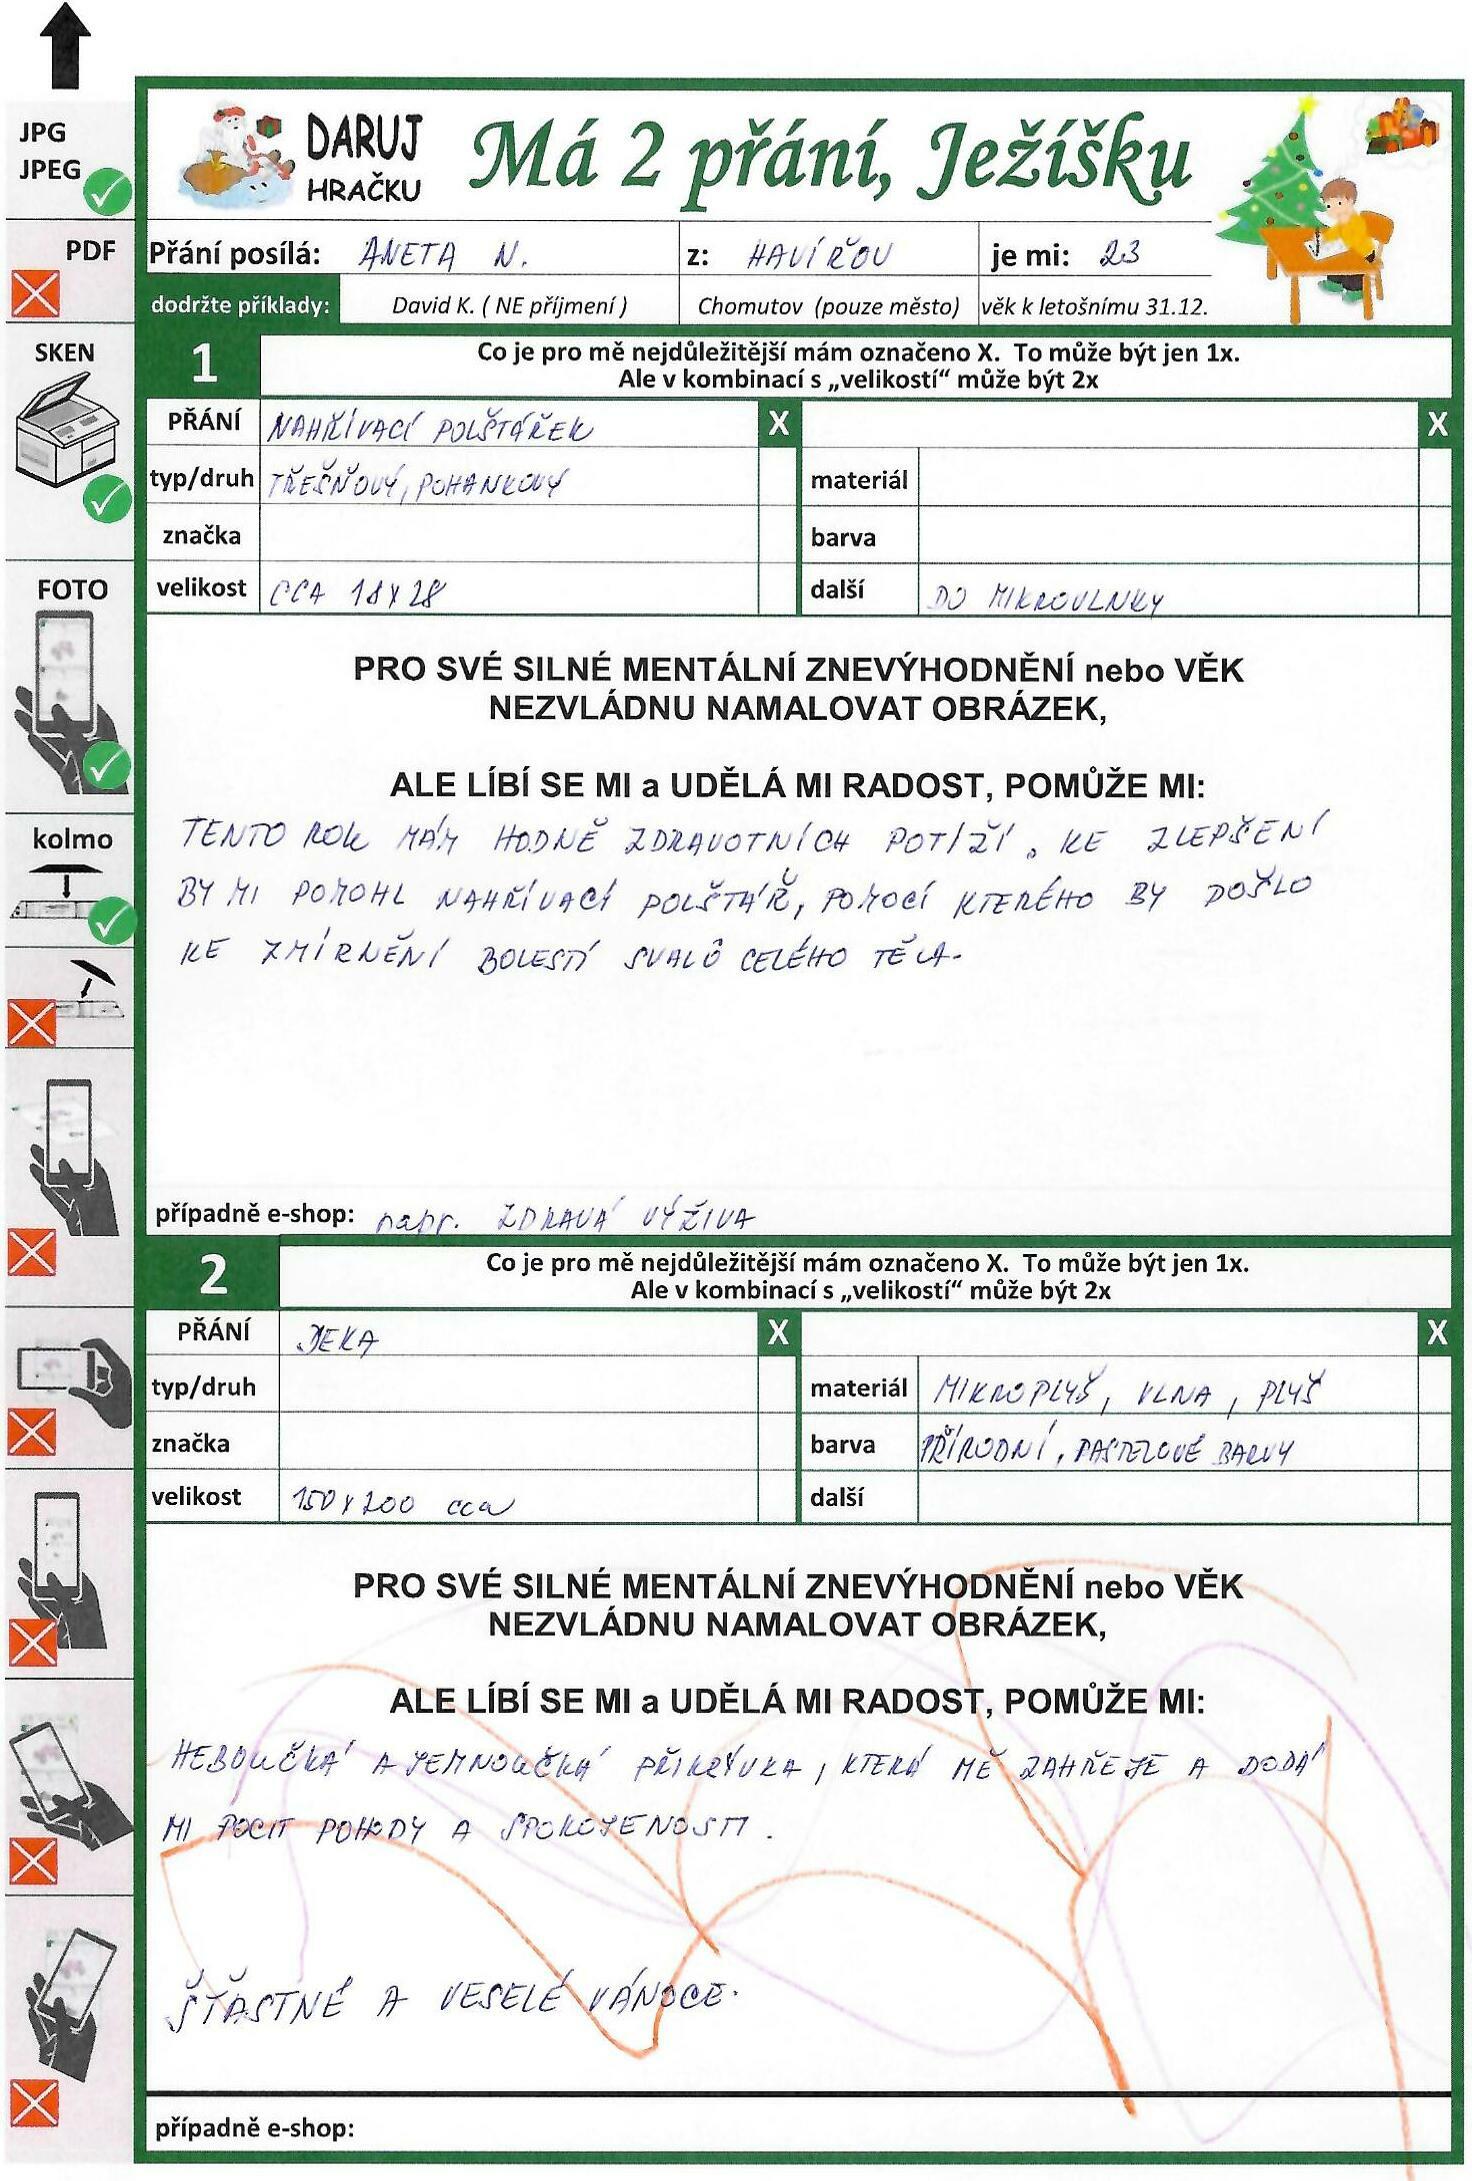 JPG
JPEG
PDF
SKEN
FOTO
kolmo
DARUJ
HRAČKU
Má 2 přání, Ježíšku
Přání posílá: ANETA N. z: HAVÍŘOV je mi: 23
dodržte příklady: David K. ( NE příjmení ) Chomutov (pouze město) věk k letošnímu 31.12.
1 Co je pro mě nejdůležitější mám označeno X. To může být jen 1x.
Ale v kombinací s „velikostí“ může být 2x
PŘÁNÍ NAHŘÍVACÍ POLŠTÁŘEK X X
typ/druh TŘEŠŇOVÝ, POHANKOVÝ materiál
značka barva
velikost CCA 18X28 další DO MIKROVLNKY
PRO SVÉ SILNÉ MENTÁLNÍ ZNEVÝHODNĚNÍ nebo VĚK
NEZVLÁDNU NAMALOVAT OBRÁZEK,
ALE LÍBÍ SE MI a UDĚLÁ MI RADOST, POMŮŽE MI:
TENTO ROK MÁM HODNĚ ZDRAVOTNÍCH POTÍŽÍ. KE ZLEPŠENÍ
BY MI POMOHL NAHŘÍVACÍ POLŠTÁŘ, POMOCÍ KTERÉHO BY DOŠLO
KE ZMÍRNĚNÍ BOLESTÍ SVALŮ CELÉHO TĚLA.
případně e-shop: např. ZDRAVÁ VÝŽIVA
2 Co je pro mě nejdůležitější mám označeno X. To může být jen 1x.
Ale v kombinací s „velikostí“ může být 2x
PŘÁNÍ DEKA X X
typ/druh materiál MIKROPLYŠ, VLNA, PLYŠ
značka barva PŘÍRODNÍ, PASTELOVÉ BARVY
velikost 150X200 cca další
PRO SVÉ SILNÉ MENTÁLNÍ ZNEVÝHODNĚNÍ nebo VĚK
NEZVLÁDNU NAMALOVAT OBRÁZEK,
ALE LÍBÍ SE MI a UDĚLÁ MI RADOST, POMŮŽE MI:
HEBOUČKÁ A JEMNOUČKÁ PŘIKRÝVKA, KTERÁ MĚ ZAHŘEJE A DODÁ
MI POCIT POHODY A SPOKOJENOSTI.
ŠŤASTNÉ A VESELÉ VÁNOCE.
případně e-shop: